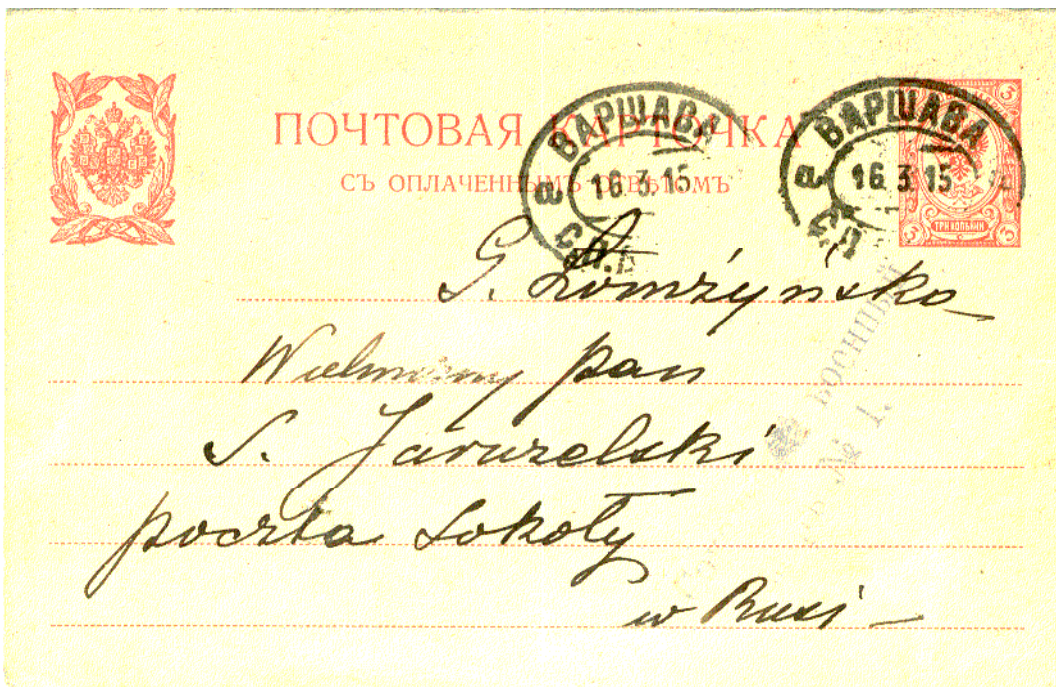 ПОЧТОВАЯ КАРТОЧКА
СЪ ОПЛАЧЕННЫМЪ ОТВѢТОМЪ
ВАРШАВА
16.3.15
а
ВАРШАВА
16.3.15
а
3
3
3
ТРИ КОПѢЙКИ
G. Łomżyńska
Wielmożny pan
S. Jaruzelski
poczta Sokoły
w Rusi
№ 1.